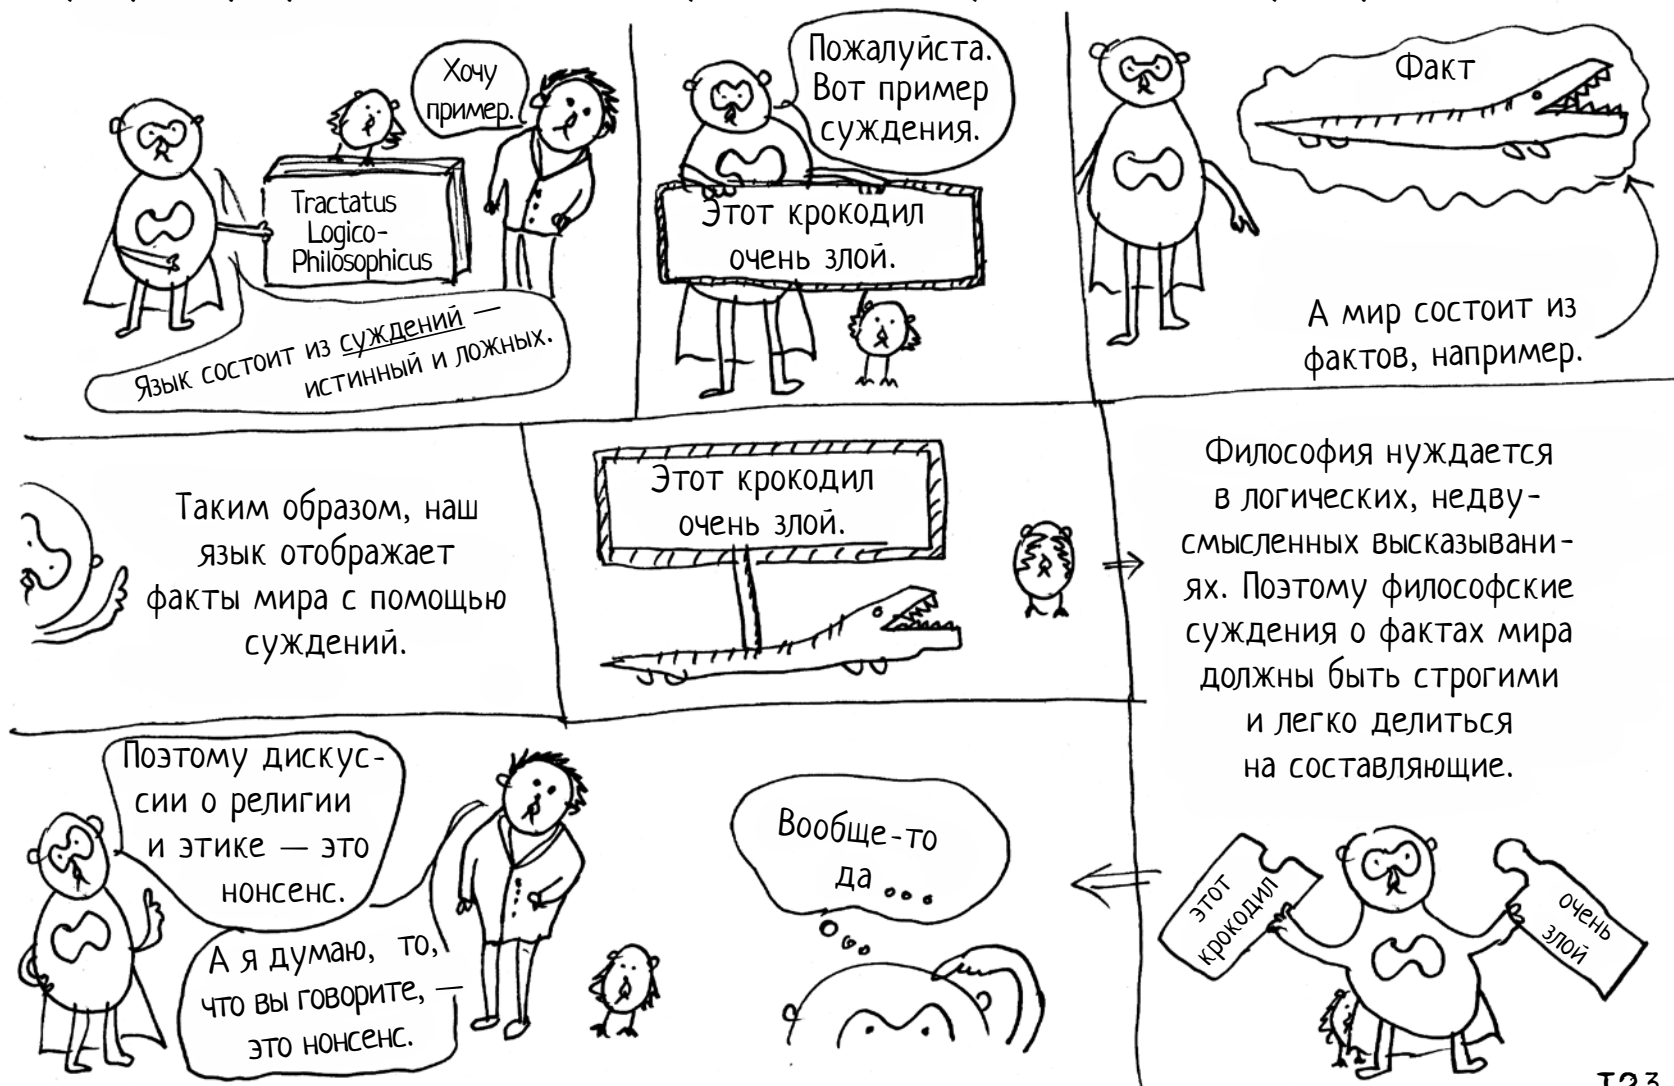 Хочу
пример.
Tractatus
Logico-
Philosophicus
Язык состоит из суждений —
истинный и ложных.
Пожалуйста.
Вот пример
суждения.
Этот крокодил
очень злой.
Факт
А мир состоит из
фактов, например.
Таким образом, наш
язык отображает
факты мира с помощью
суждений.
Этот крокодил
очень злой.
Философия нуждается
в логических, недву-
смысленных высказывани-
ях. Поэтому философские
суждения о фактах мира
должны быть строгими
и легко делиться
на составляющие.
этот
крокодил
очень
злой
Поэтому дискус-
сии о религии
и этике — это
нонсенс.
А я думаю, то,
что вы говорите, —
это нонсенс.
Вообще-то
да ...